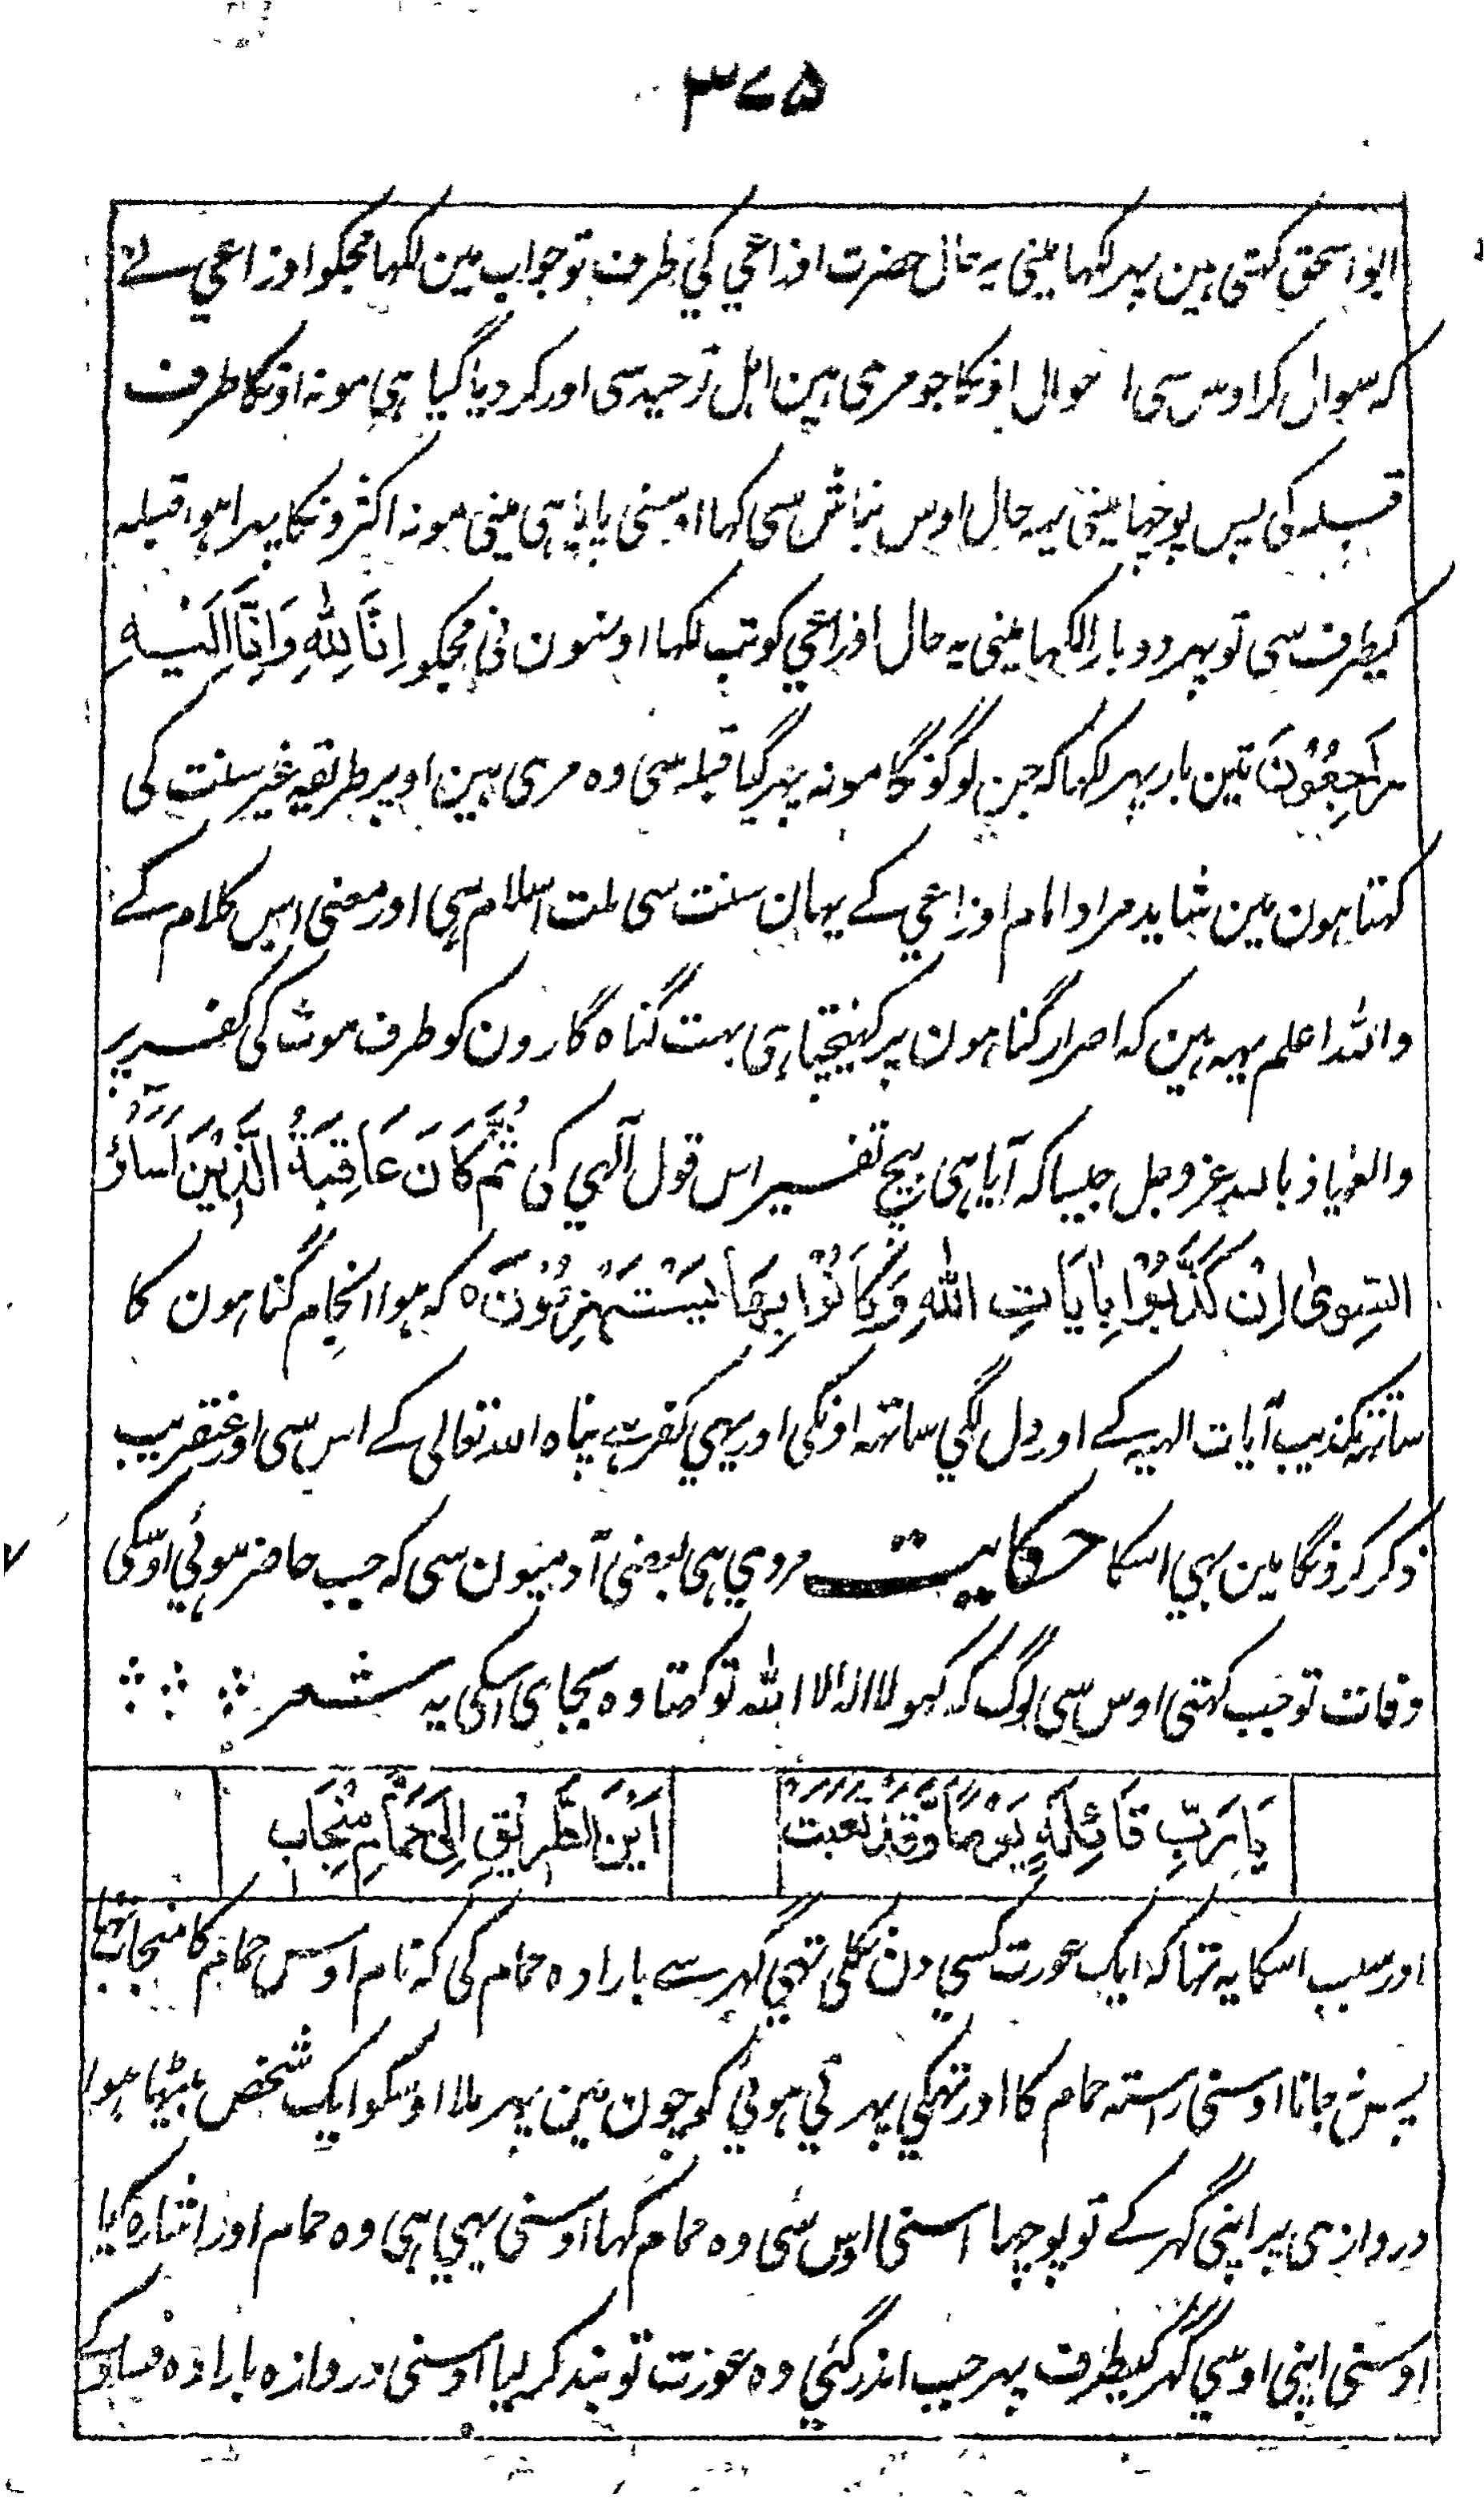 ۳۷۵
ابو اسحٰق کہتی ہین پہر لکہا مینی یہ حال حضرت اوزاعي کي طرف تو جواب مین لکہا مجکو اوزاعي نے
کہ سوال کر اوس سی احوال اونکا جو مری ہین اہل توحید سی اور کر دیا گیا ہی مونہ اونکا طرف
قبلہ کی پس پوچہا مینی یہ حال اوس نباش سی کہا اوسنی پایا ہی مینی مونہ اکثرونکا پہرا ہوا قبلہ
کیطرف سی تو پہر دوبارا لکہا مینی یہ حال اوزاعي کو تب لکہا اونہون نی مجکو اِنَّا لِلّٰہِ وَاِنَّا اِلَیْہِ
رَاجِعُوْنَ تین بار پہر لکہا کہ جن لوگونکا مونہ پہر گیا قبلہ سی وہ مری ہین اوپر طریقہ غیر سنت کی
کہتا ہون مین شاید مراد امام اوزاعي کے یہان سنت سی ملت اسلام ہی اور معنی اس کلام کے
واللہ اعلم یہہ ہین کہ اصرار گناہون پر کہینچتا ہی بہت گناہ گارون کو طرف موت کی کفر پر
والعیاذ باللہ عزوجل جیسا کہ آیا ہی بیچ تفسیر اس قول آلہي کی ثُمَّ کَانَ عَاقِبَۃُ الَّذِیْنَ اَسَآؤُ
السُوٰیٰ اِنْ کَذَّبُوْا بِاٰیَاتِ اللّٰہِ وَکَانُوْا بِہَا یَسْتَہْزِءُوْنَ ہ کہ ہوا انجام گناہون کا
ساتہ تکذیب آیات الہیہ کے اور دل لگي ساتہہ اونکی اور یہي کفر ہے پناہ اللہ تعالی کے اس سی اور عنقریب
ذکر کرونگا مین بہي اسکا حکایت مروي ہی بعضی آدمیون سی کہ جب حاضر ہوئي اوسکی
وفات تو جب کہتی اوس سی لوگ کہ کہو لا الہ الا اللہ تو کہتا وہ بجای اسکی یہ شعر
یَا رَبِّ قَائِلَۃٍ یَوْمًا وَقَدْ تَعِبَتْ اَیْنَ الطَّرِیْقِ اِلٰی حَمَّامِ مِنْجَاب
اور سبب اسکا یہ تہا کہ ایک عورت کسي دن نکلی تہي گہر سے بارادہ حمام کی کہ نام اوس حمام کا منجاب تہا
پس نہ جانا اوسنی رستہ حمام کا اور تہکي پہرتي ہوئي کوچون مین پہر ملا اوسکو ایک شخص بیٹہا ہوا
دروازی پر اپنی گہر کے تو پوچہا اسنی اوس سی وہ حمام کہا اوسنی یہي ہی وہ حمام اور اشارہ کیا
اوسنی اپنی اوسي گہر کیطرف پہر جب اندر گئي وہ عورت تو بند کر لیا اوسنی دروازہ بارادہ فساد کے